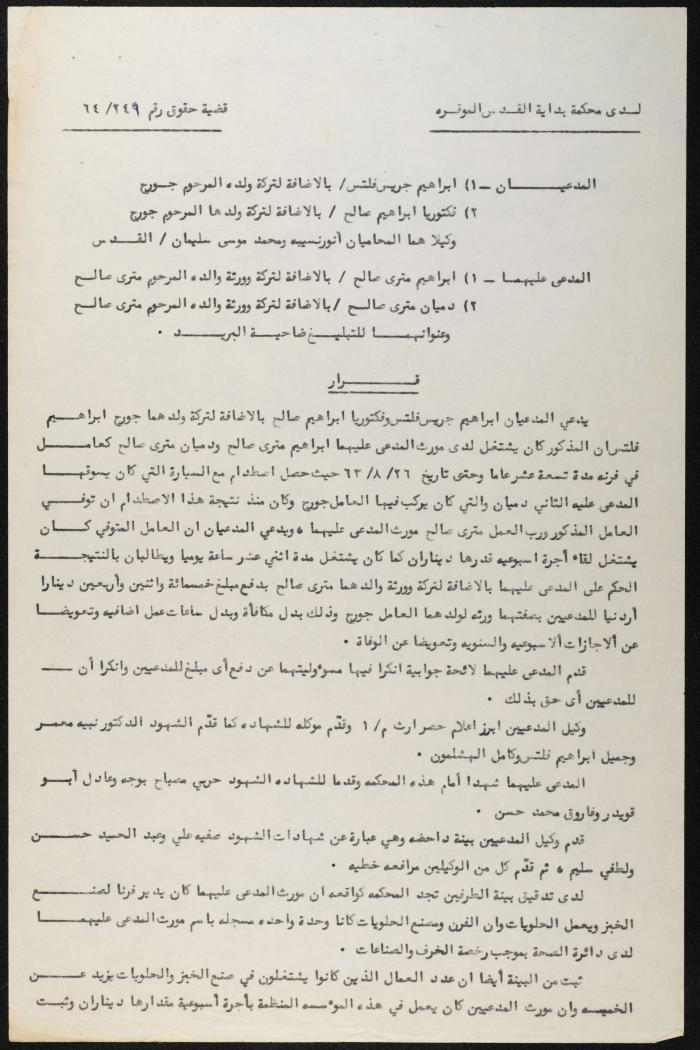 لدى محكمة بداية القدس الموقره
قضية حقوق رقم ٦٤/٢٤٩
المدعيان - ١) ابراهيم جريس فلتس/ بالاضافة لتركة ولده المرحوم جورج
٢) فكتوريا ابراهيم صالح / بالاضافة لتركة ولدها المرحوم جورج
وكيلا هما المحاميان أنورنسيبه ومحمد موسى سليمان / القدس
المدعى عليهما - ١) ابراهيم مترى صالح / بالاضافة لتركة وورثة والده المرحوم مترى صالح
٢) دميان مترى صالح /بالاضافة لتركة وورثة والده المرحوم مترى صالح
وعنوانهما للتبليغ ضاحية البريد .
قرار
يدعي المدعيان ابراهيم جريس فلتس وفكتوريا ابراهيم صالح بالاضافة لتركة ولدهما جورج ابراهيم
فلتس ان المذكور كان يشتغل لدى مورث المدعى عليهما ابراهيم مترى صالح ودميان مترى صالح كعامل
في فرنه مدة تسعة عشر عاما وحتى تاريخ ٢٦/ ٨/ ٦٣ حيث حصل اصطدام مع السيارة التي كان يسوقها
المدعى عليه الثاني دميان والتي كان يركب فيها العامل جورج وكان منذ نتيجة هذا الاصطدام ان توفي
العامل المذكور ورب العمل مترى صالح مورث المدعى عليهما ، ويدعي المدعيان ان العامل المتوفي كان
يشتغل لقاء أجرة اسبوعيه قدرها ديناران كما كان يشتغل مدة اثني عشر ساعة يوميا ويطالبان بالنتيجة
الحكم على المدعى عليهما بالاضافة لتركة وورثة والدهما مترى صالح بدفع مبلغ خمسمائة واثنين وأربعين دينارا
أردنيا للمدعيين بصفتهما ورثه لولدهما العامل جورج وذلك بدل مكافأة وبدل ساعات عمل اضافيه وتعويضا
عن ألاجازات ألاسبوعيه والسنويه وتعويضا عن الوفاة .
قدم المدعى عليهما لائحة جوابية انكرا فيها مسؤوليتهما عن دفع أى مبلغ للمدعيين وانكرا أن
للمدعيين أى حق بذلك .
وكيل المدعيين ابرز اعلام حصر ارث م/ ١ وقدّم موكله للشهاده كما قدّم الشهود الدكتور نبيه معمر
وجميل ابراهيم فلتس وكامل الهشلمون .
المدعى عليهما شهدا أمام هذه المحكمه وقدما للشهاده الشهود حربي مصباح بوجه وعادل أبو
قويدر وفاروق محمد حسن .
قدم وكيل المدعيين بينة داحضه وهي عبارة عن شهادات الشهود صفيه علي وعبد الحميد حسن
ولطفي سليم ، ثم قدّم كل من الوكيلين مرافعه خطيه .
لدى تدقيق بينة الطرفين تجد المحكمه كواقعه ان مورث المدعى عليهما كان يدير فرنا لصنع
الخبز ويعمل الحلويات وان الفرن ومصنع الحلويات كانا وحدة واحده مسجله باسم مورث المدعى عليهما
لدى دائرة الصحة بموجب رخصة الحرف والصناعات .
ثبت من البينة أيضا ان عدد العمال الذين كانوا يشتغلون في صنع الخبز والحلويات يزيد عن
الخمسه وان مورث المدعيين كان يعمل في هذه المؤسسه المنظمة بأجرة أسبوعية مقدارها ديناران وثبت